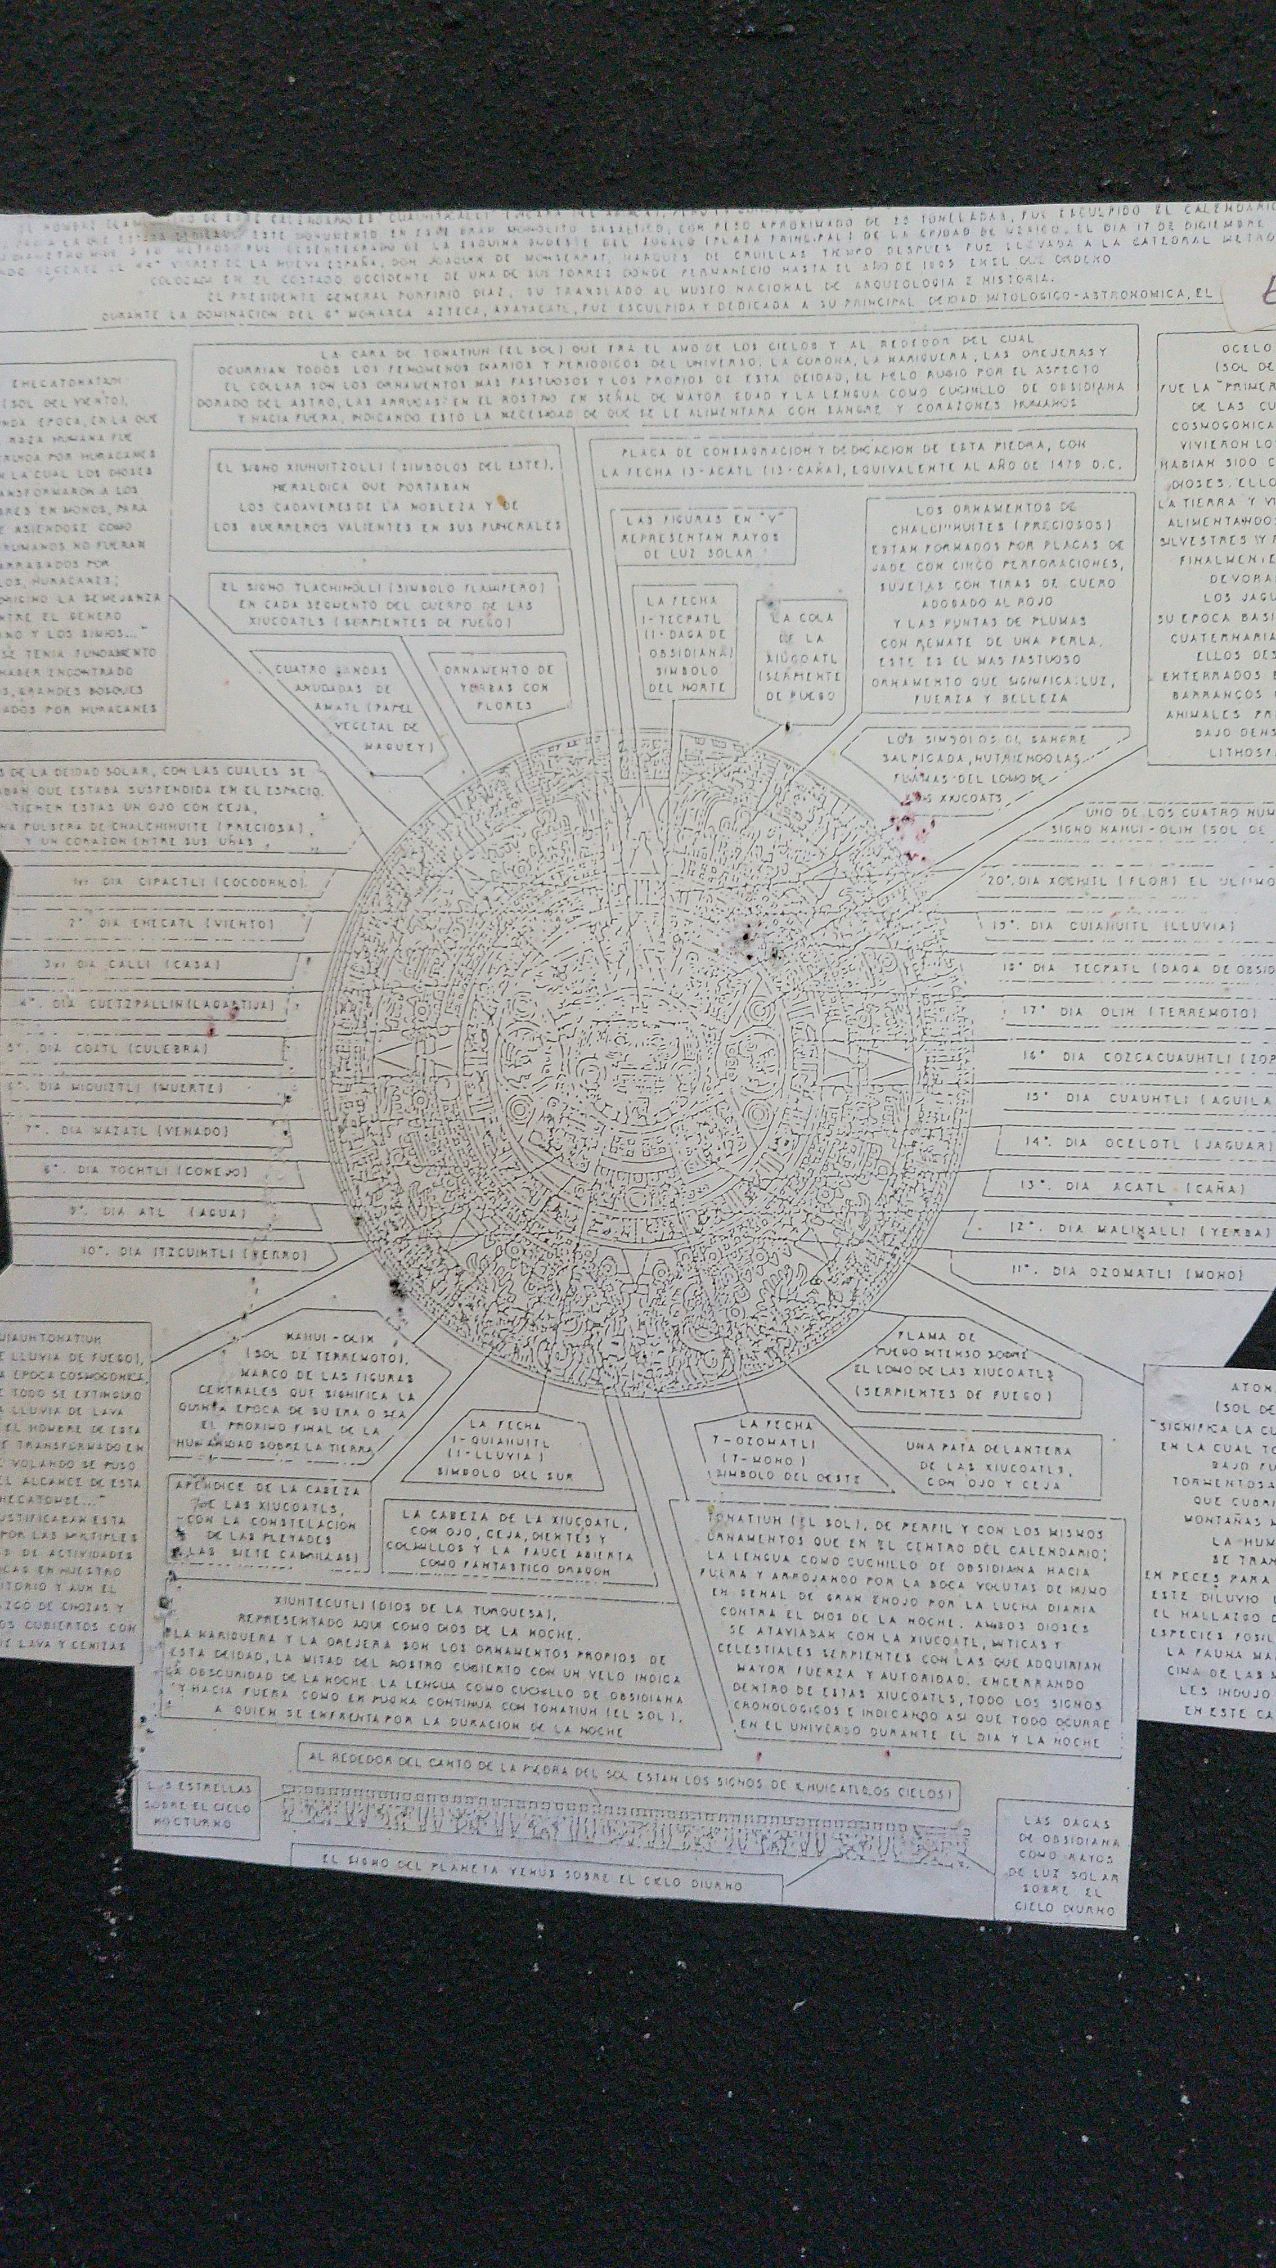 ESTE MONUMENTO EN ESTE GRAN MONOLITO BASALTICO, CON PESO APROXIMADO DE 25 TONELADAS, FUE ESCULPIDO EL CALENDARIO
DE LA ESQUINA SUDESTE DEL ZOCALO (PLAZA PRINCIPAL) DE LA CIUDAD DE MEXICO, EL DIA 17 DE DICIEMBRE
VIRREY DE LA NUEVA ESPAÑA, DON JOAQUIN DE MONSERRAT, MARQUES DE CRUILLAS TIEMPO DESPUES FUE LLEVADA A LA CATEDRAL METRO
COLOCADA EN EL COSTADO OCCIDENTE DE UNA DE SUS TORRES DONDE PERMANECIO HASTA EL AÑO DE 1885 EN EL QUE ORDENO
EL PRESIDENTE GENERAL PORFIRIO DIAZ, SU TRANSLADO AL MUSEO NACIONAL DE ARQUEOLOGIA E HISTORIA.
DURANTE LA DOMINACION DEL 6° MONARCA AZTECA, AXAYACATL, FUE ESCULPIDA Y DEDICADA A SU PRINCIPAL DEIDAD MITOLOGICO-ASTRONOMICA, EL
LA CARA DE TONATIUH (EL SOL) QUE ERA EL AMO DE LOS CIELOS Y AL REDEDOR DEL CUAL
OCURRIAN TODOS LOS FENOMENOS DIARIOS Y PERIODICOS DEL UNIVERSO, LA CORONA, LA NARIGUERA, LAS OREJERAS Y
EL COLLAR SON LOS ORNAMENTOS MAS FASTUOSOS Y LOS PROPIOS DE ESTA DEIDAD, EL PELO RUBIO POR EL ASPECTO
DORADO DEL ASTRO, LAS ARRUGAS EN EL ROSTRO EN SEÑAL DE MAYOR EDAD Y LA LENGUA COMO CUCHILLO DE OBSIDIANA
Y HACIA FUERA, INDICANDO ESTO LA NECESIDAD DE QUE SE LE ALIMENTARA CON SANGRE Y CORAZONES HUMANOS
EHECATONATIUH
(SOL DEL VIENTO),
NDA EPOCA, EN LA QUE
RAZA HUMANA FUE
RUIDA POR HURACANES
N LA CUAL LOS DIOSES
ANSFORMARON A LOS
BRES EN MONOS, PARA
E ASIENDOSE COMO
HUMANOS NO FUERAN
ARRASADOS POR
LOS, HURACANES;
ORIGINO LA SEMEJANZA
NTRE EL GENERO
NO Y LOS SIMIOS..."
SE TENIA FUNDAMENTO
HABER ENCONTRADO
S, GRANDES BOSQUES
ADOS POR HURACANES
EL SIGNO XIUHUITZOLLI (SIMBOLOS DEL ESTE),
HERALDICA QUE PORTABAN
LOS CADAVERES DE LA NOBLEZA Y DE
LOS GUERREROS VALIENTES EN SUS FUNERALES
PLACA DE CONSAGRACION Y DEDICACION DE ESTA PIEDRA, CON
LA FECHA 13-ACATL (13-CAÑA), EQUIVALENTE AL AÑO DE 1479 D.C.
LAS FIGURAS EN "V"
REPRESENTAN RAYOS
DE LUZ SOLAR
LOS ORNAMENTOS DE
CHALCHIHUITES (PRECIOSOS)
ESTAN FORMADOS POR PLACAS DE
JADE CON CINCO PERFORACIONES,
SUJETAS CON TIRAS DE CUERO
ADOBADO AL ROJO
Y LAS PUNTAS DE PLUMAS
CON REMATE DE UNA PERLA.
ESTE ES EL MAS FASTUOSO
ORNAMENTO QUE SIGNIFICA: LUZ,
FUERZA Y BELLEZA
OCELO
(SOL DE
FUE LA "PRIMER
DE LAS CU
COSMOGONICA
VIVIERON LO
HABIAN SIDO C
DIOSES. ELLO
LA TIERRA Y V
ALIMENTANDOS
SILVESTRES Y F
FINALMENTE
DEVORA
LOS JAGU
SU EPOCA BASI
CUATERNARIA
ELLOS DES
ENTERRADOS E
BARRANCOS
ANIMALES PR
BAJO DENS
LITHOSF
EL SIGNO TLACHINOLLI (SIMBOLO FLAMIFERO)
EN CADA SEGMENTO DEL CUERPO DE LAS
XIUCOATLS (SERPIENTES DE FUEGO)
LA FECHA
1-TECPATL
(1-DAGA DE
OBSIDIANA)
SIMBOLO
DEL NORTE
LA COLA
DE LA
XIUCOATL
(SERPIENTE
DE FUEGO
CUATRO BANDAS
ANUDADAS DE
AMATL (PAPEL
VEGETAL DE
MAGUEY)
ORNAMENTO DE
YERBAS CON
FLORES
LOS SIMBOLOS DE SANGRE
SALPICADA, NUTRIENDO LAS
FLAMAS DEL LOMO DE
LAS XIUCOATS
S DE LA DEIDAD SOLAR, CON LAS CUALES SE
ABAN QUE ESTABA SUSPENDIDA EN EL ESPACIO.
TIENEN ESTAS UN OJO CON CEJA,
NA PULSERA DE CHALCHIHUITE (PRECIOSA),
Y UN CORAZON ENTRE SUS UÑAS
UNO DE LOS CUATRO NUM
SIGNO NAHUI-OLIN (SOL DE
1er DIA CIPACTLI (COCODRILO)
2° DIA EHECATL (VIENTO)
3er DIA CALLI (CASA)
4°. DIA CUETZPALLIN (LAGARTIJA)
5°. DIA COATL (CULEBRA)
6°. DIA MIQUIZTLI (MUERTE)
7°. DIA MAZATL (VENADO)
8°. DIA TOCHTLI (CONEJO)
9°. DIA ATL (AGUA)
10°. DIA ITZCUINTLI (PERRO)
20°. DIA XOCHITL (FLOR) EL ULTIMO
19°. DIA CUIAHUITL (LLUVIA)
18° DIA TECPATL (DAGA DE OBSID
17° DIA OLIN (TERREMOTO)
16° DIA COZCACUAUHTLI (ZOP
15° DIA CUAUHTLI (AGUILA
14°. DIA OCELOTL (JAGUAR)
13°. DIA ACATL (CAÑA)
12°. DIA MALINALLI (YERBA)
11°. DIA OZOMATLI (MONO)
UIAUHTONATIUH
E LLUVIA DE FUEGO),
A EPOCA COSMOGONICA,
E TODO SE EXTINGUIO
A LLUVIA DE LAVA
EL HOMBRE DE ESTA
E TRANSFORMADO EN
VOLANDO SE PUSO
EL ALCANCE DE ESTA
HECATOMBE..."
USTIFICABAN ESTA
POR LAS MULTIPLES
S DE ACTIVIDADES
ICAS EN NUESTRO
ITORIO Y AUN EL
AZGO DE CHOZAS Y
OS CUBIERTOS CON
E LAVA Y CENIZAS
NAHUI-OLIN
(SOL DE TERREMOTO),
MARCO DE LAS FIGURAS
CENTRALES QUE SIGNIFICA LA
QUINTA EPOCA DE SU ERA O SEA
EL PROXIMO FINAL DE LA
HUMANIDAD SOBRE LA TIERRA
LA FECHA
1-QUIAHUITL
(1-LLUVIA)
SIMBOLO DEL SUR
LA FECHA
7-OZOMATLI
(7-MONO)
SIMBOLO DEL OESTE
FLAMA DE
FUEGO INTENSO SOBRE
EL LOMO DE LAS XIUCOATLS
(SERPIENTES DE FUEGO)
UNA PATA DELANTERA
DE LAS XIUCOATLS,
CON OJO Y CEJA
APENDICE DE LA CABEZA
DE LAS XIUCOATLS,
CON LA CONSTELACION
DE LAS PLEYADES
(LAS SIETE CABRILLAS)
LA CABEZA DE LA XIUCOATL,
CON OJO, CEJA, DIENTES Y
COLMILLOS Y LA FAUCE ABIERTA
COMO FANTASTICO DRAGON
TONATIUH (EL SOL), DE PERFIL Y CON LOS MISMOS
ORNAMENTOS QUE EN EL CENTRO DEL CALENDARIO;
LA LENGUA COMO CUCHILLO DE OBSIDIANA HACIA
FUERA Y ARROJANDO POR LA BOCA VOLUTAS DE HUMO
EN SEÑAL DE GRAN ENOJO POR LA LUCHA DIARIA
CONTRA EL DIOS DE LA NOCHE. AMBOS DIOSES
SE ATAVIABAN CON LA XIUCOATL, MITICAS Y
CELESTIALES SERPIENTES CON LAS QUE ADQUIRIAN
MAYOR FUERZA Y AUTORIDAD. ENCERRANDO
DENTRO DE ESTAS XIUCOATLS, TODO LOS SIGNOS
CRONOLOGICOS E INDICANDO ASI QUE TODO OCURRE
EN EL UNIVERSO DURANTE EL DIA Y LA NOCHE
XIUHTECUTLI (DIOS DE LA TURQUESA),
REPRESENTADO AQUI COMO DIOS DE LA NOCHE.
LA NARIGUERA Y LA OREJERA SON LOS ORNAMENTOS PROPIOS DE
ESTA DEIDAD, LA MITAD DEL ROSTRO CUBIERTO CON UN VELO INDICA
LA OBSCURIDAD DE LA NOCHE. LA LENGUA COMO CUCHILLO DE OBSIDIANA
Y HACIA FUERA COMO EN PUGNA CONTINUA CON TONATIUH (EL SOL),
A QUIEN SE ENFRENTA POR LA DURACION DE LA NOCHE
ATON
(SOL DE
"SIGNIFICA LA CU
EN LA CUAL TO
BAJO FU
TORMENTOSA
QUE CUBRI
MONTAÑAS M
LA HUM
SE TRAN
EN PECES PARA
ESTE DILUVIO L
EL HALLAZGO D
ESPECIES FOSIL
LA FAUNA MA
CIMA DE LAS M
LES INDUJO
EN ESTE CA
AL REDEDOR DEL CANTO DE LA PIEDRA DEL SOL ESTAN LOS SIGNOS DE ILHUICATL (LOS CIELOS)
LAS ESTRELLAS
SOBRE EL CIELO
NOCTURNO
EL SIGNO DEL PLANETA VENUS SOBRE EL CIELO DIURNO
LAS DAGAS
DE OBSIDIANA
COMO RAYOS
DE LUZ SOLAR
SOBRE EL
CIELO DIURNO